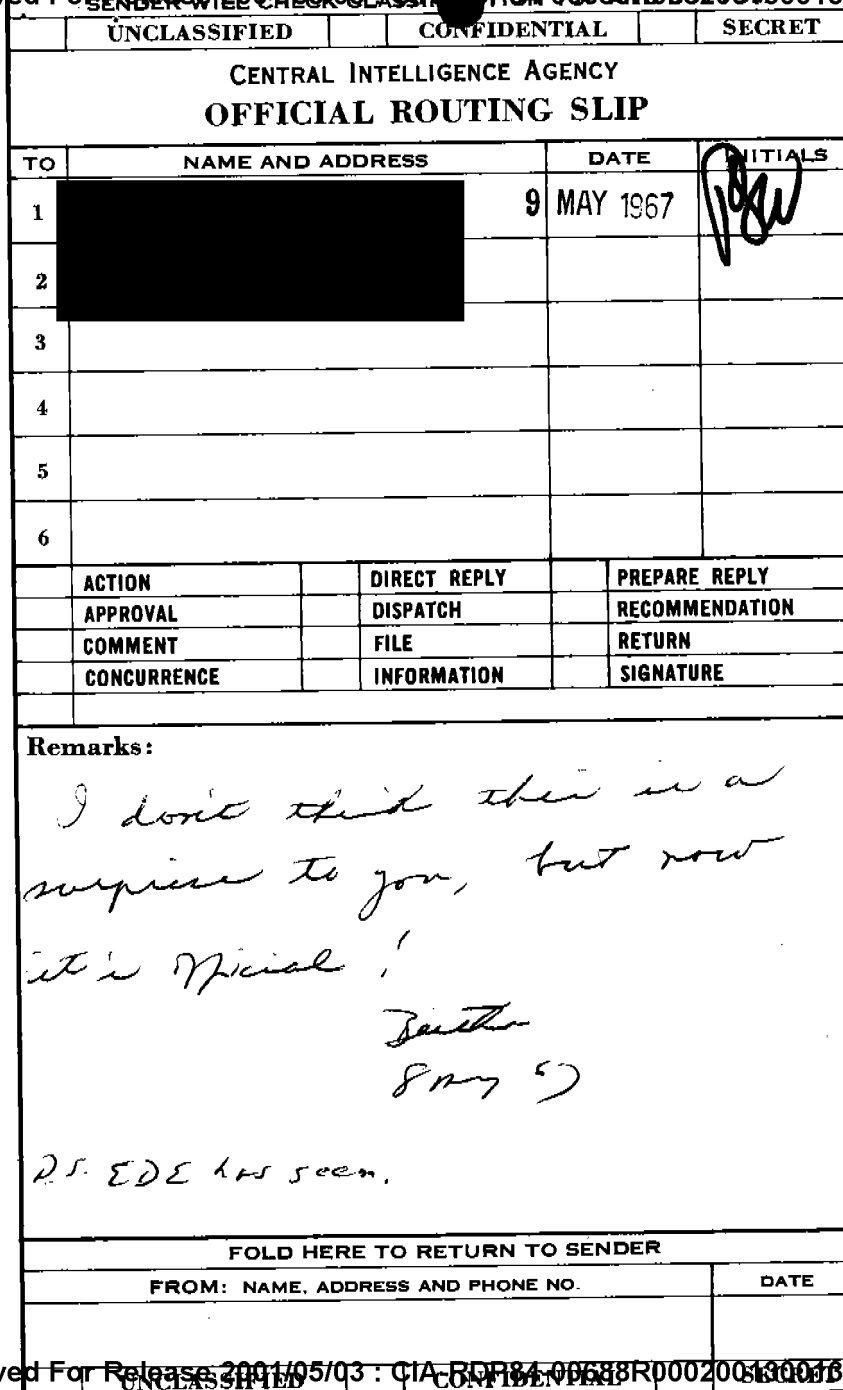 SENDER WILL CHECK CLASSIFICATION
UNCLASSIFIED CONFIDENTIAL SECRET
CENTRAL INTELLIGENCE AGENCY
OFFICIAL ROUTING SLIP
TO NAME AND ADDRESS DATE INITIALS
1 9 MAY 1967
2
3
4
5
6
ACTION DIRECT REPLY PREPARE REPLY
APPROVAL DISPATCH RECOMMENDATION
COMMENT FILE RETURN
CONCURRENCE INFORMATION SIGNATURE
Remarks:
I don't think this is a
surprise to you, but now
it's official!
8 May 67
P.S. EDE has seen.
FOLD HERE TO RETURN TO SENDER
FROM: NAME, ADDRESS AND PHONE NO. DATE
ved For Release 2001/05/03 : CIA-RDP84-00688R0002001900
UNCLASSIFIED CONFIDENTIAL SECRET